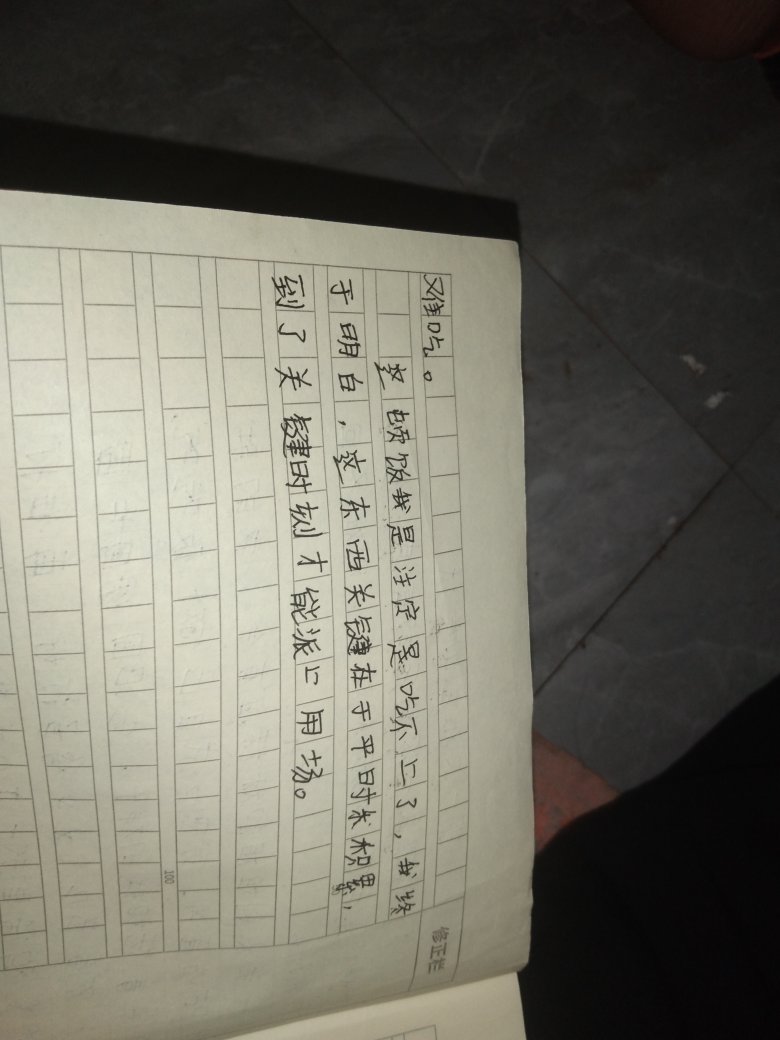 难吃。
这顿饭我是注定是吃不上了，我终
于明白，这东西关键在于平时积累，
到了关键时刻才能派上用场。
修正栏
100